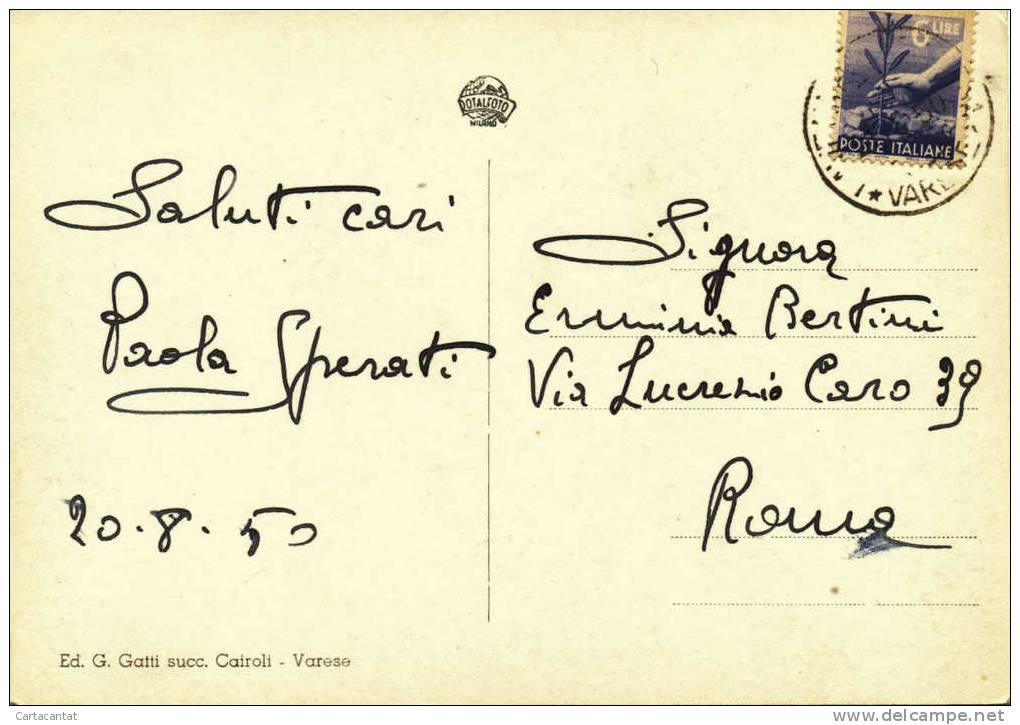 6 LIRE
POSTE ITALIANE
ROTALFOTO
MILANO
Saluti cari
Paola Sperati
20.8.50
Signora
Erminia Bertini
Via Lucrezio Caro 39
Roma
Ed. G. Gatti succ. Cairoli - Varese
Cartacantat
www.delcampe.net